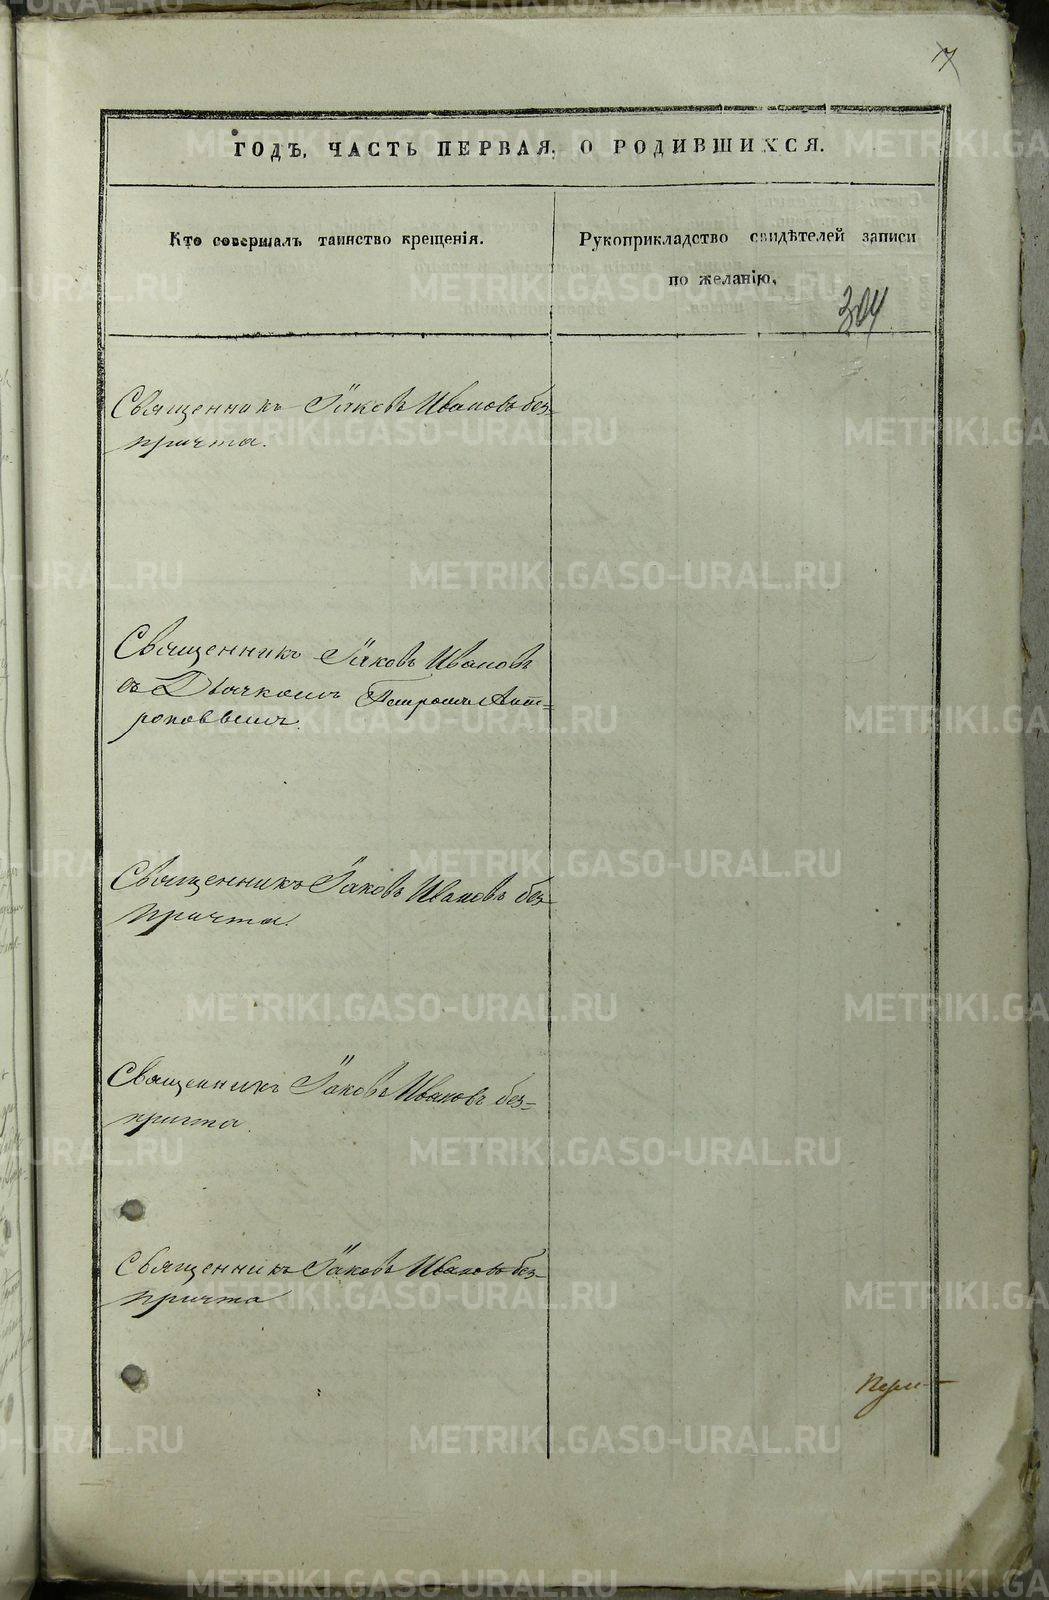 ГОДЪ, ЧАСТЬ ПЕРВАЯ, О РОДИВШИХСЯ.
Кто совершалъ таинство крещенія.
Рукоприкладство свидѣтелей записи
по желанію.
304
Священникъ Іаковъ Ивановъ без-
причта.
Священникъ Іаковъ Ивановъ
съ Дьячкомъ Петромъ Ант=
роповымъ.
Священникъ Іаковъ Ивановъ без-
причта.
Священникъ Іаковъ Ивановъ без=
причта.
Священникъ Іаковъ Ивановъ без-
причта
METRIKI.GASO-URAL.RU